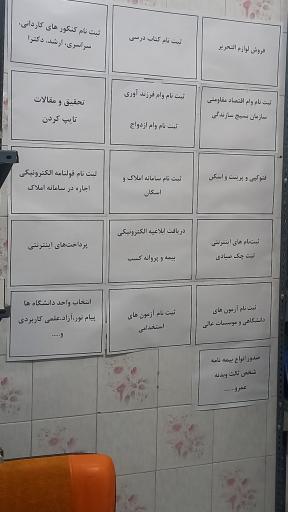 فروش لوازم التحریر
ثبت نام کتاب درسی
ثبت نام کنکور های کاردانی،
سراسری، ارشد، دکترا
ثبت نام وام اقتصاد مقاومتی
سازمان بسیج سازندگی
ثبت نام وام فرزند آوری
ثبت نام وام ازدواج
تحقیق و مقالات
تایپ کردن
فتوکپی و پرینت و اسکن
ثبت نام سامانه املاک و
اسکان
ثبت نام قولنامه الکترونیکی
اجاره در سامانه املاک
ثبت‌نام های اینترنتی
ثبت چک صیادی
دریافت ابلاغیه الکترونیکی
بیمه و پروانه کسب
پرداخت‌های اینترنتی
ثبت نام آزمون های
دانشگاهی و موسسات عالی
ثبت نام آزمون های
استخدامی
انتخاب واحد دانشگاه ها
پیام نور،آزاد،علمی کاربردی
و....
صدور انواع بیمه نامه
شخص ثالث وبدنه
عمرو.....